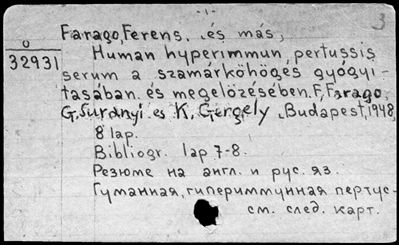 -1-
3
Farago, Ferens. .és más,
0
32931
Human hyperimmun pertussis
serum a szamárköhögés gyógyi-
tasában és megelözésében. F. Farago,
G. Suranyi es K. Gergely. Budapest, 1948
8 lap.
Bibliogr. lap 7-8.
Резюме на англ. и рус. яз.
Гуманная, гипериммунная пертус-
см. след. карт.